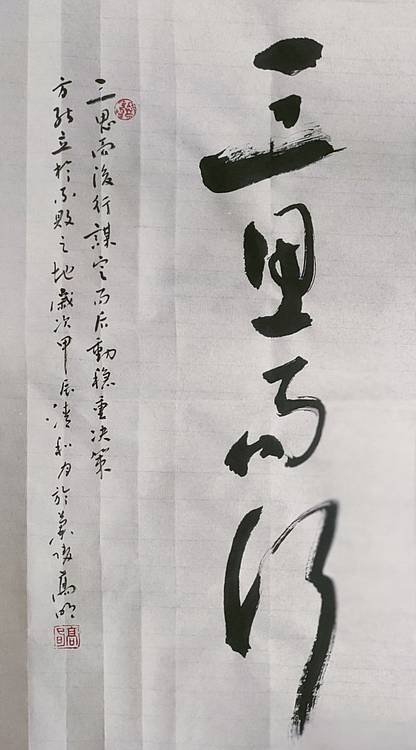 三思而行
三思而后行謀定而后動穩重决策
方能立於不敗之地歲次甲辰清和月於 高明